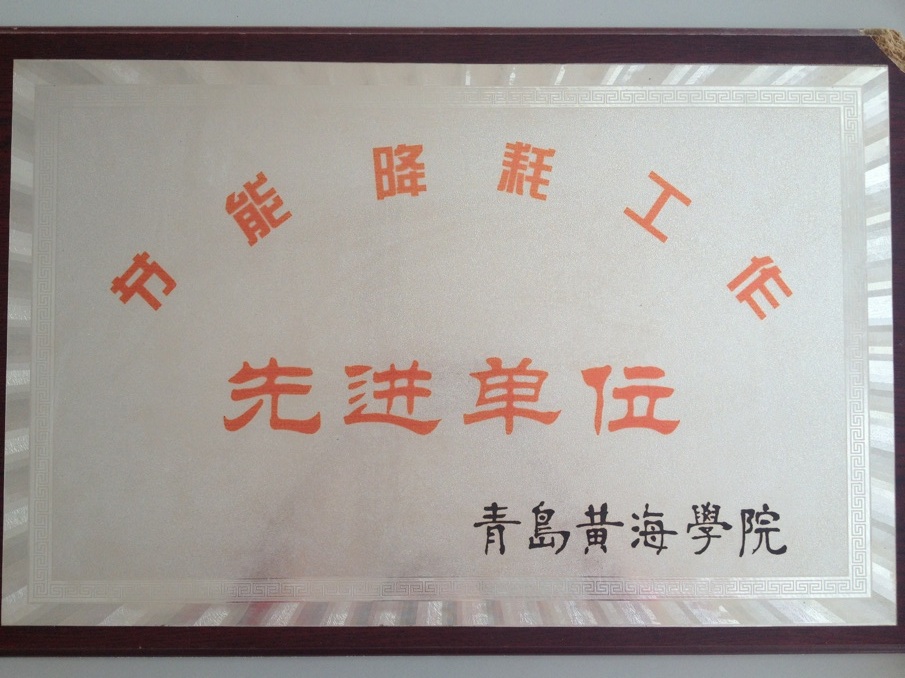 节能降耗工作
先进单位
青島黄海學院